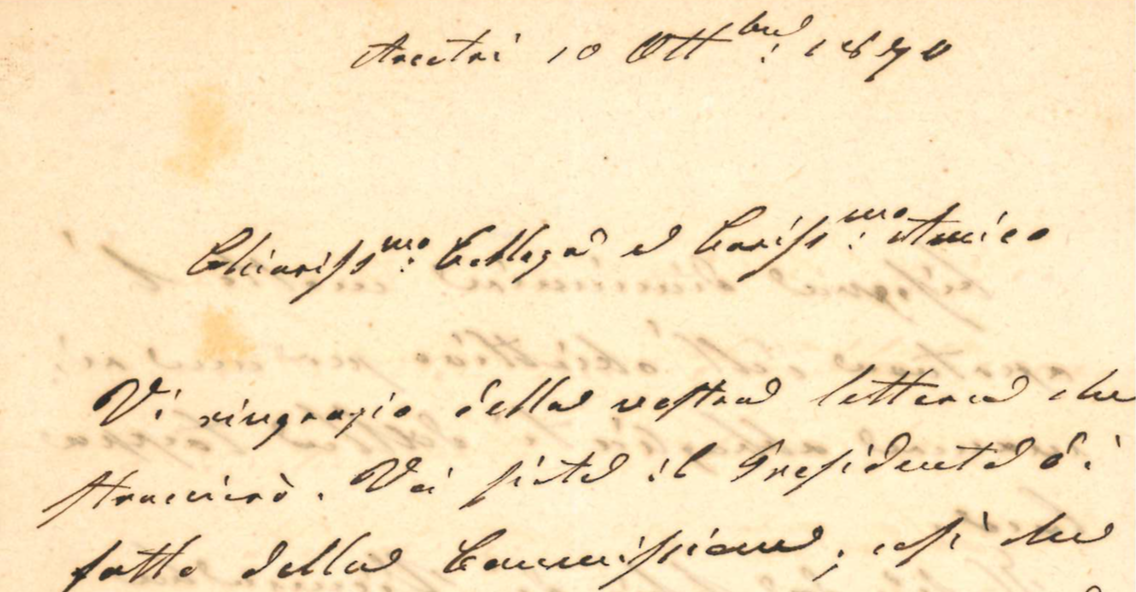 Arcetri 10 Ottbre. 1870
Chiarissmo. Collega e Carissmo. Amico
Vi ringrazio della vostra lettera che
straccierò. Voi siete il Presidente di
fatto della Commissione, così che